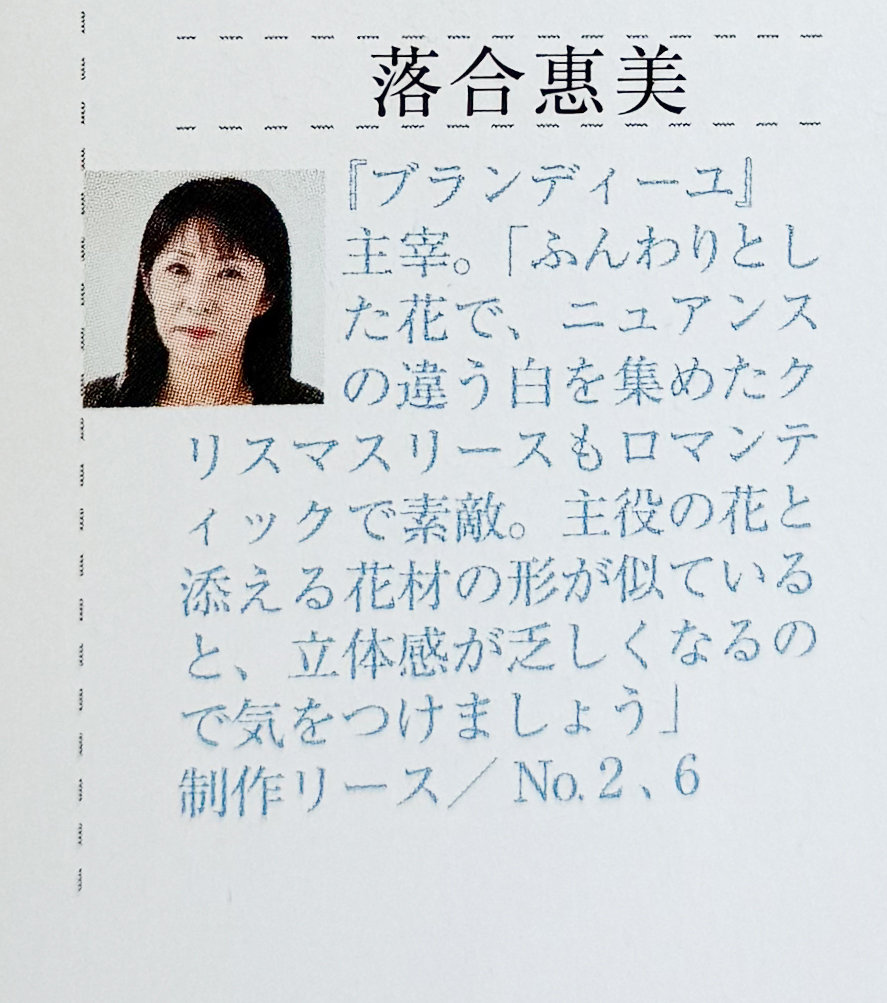 落合惠美
『ブランディーユ』
主宰。「ふんわりとし
た花で、ニュアンス
の違う白を集めたク
リスマスリースもロマンテ
ィックで素敵。主役の花と
添える花材の形が似ている
と、立体感が乏しくなるの
で気をつけましょう」
制作リース／No.2、6